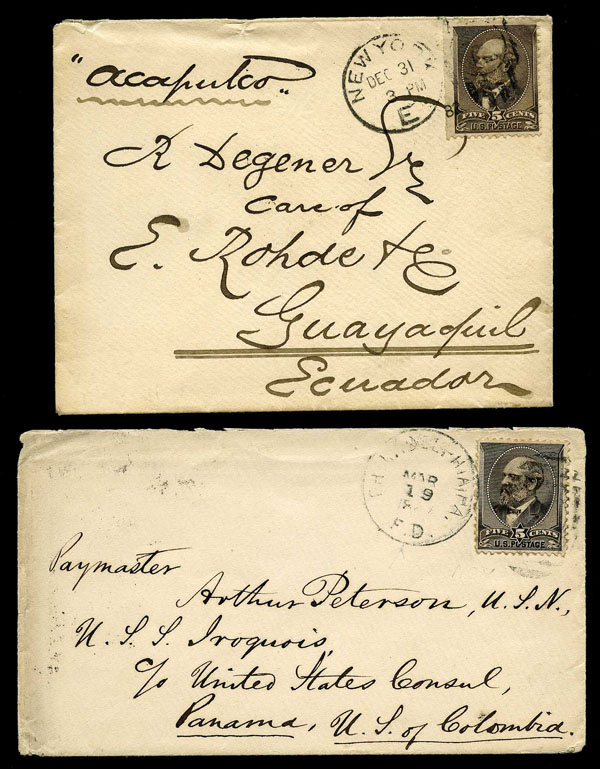 "Acapulco"
NEW YORK
DEC 31
3 PM
E
FIVE 5 CENTS
U.S. POSTAGE
R Degener Esq
Care of
E. Rohde & Co
Guayaquil
Ecuador
PHILADELPHIA, PA.
MAR
19
F.D.
FIVE 5 CENTS
U.S. POSTAGE
Paymaster
Arthur Peterson, U.S.N.,
U.S.S. Iroquois,
c/o United States Consul,
Panama, U.S. of Colombia.